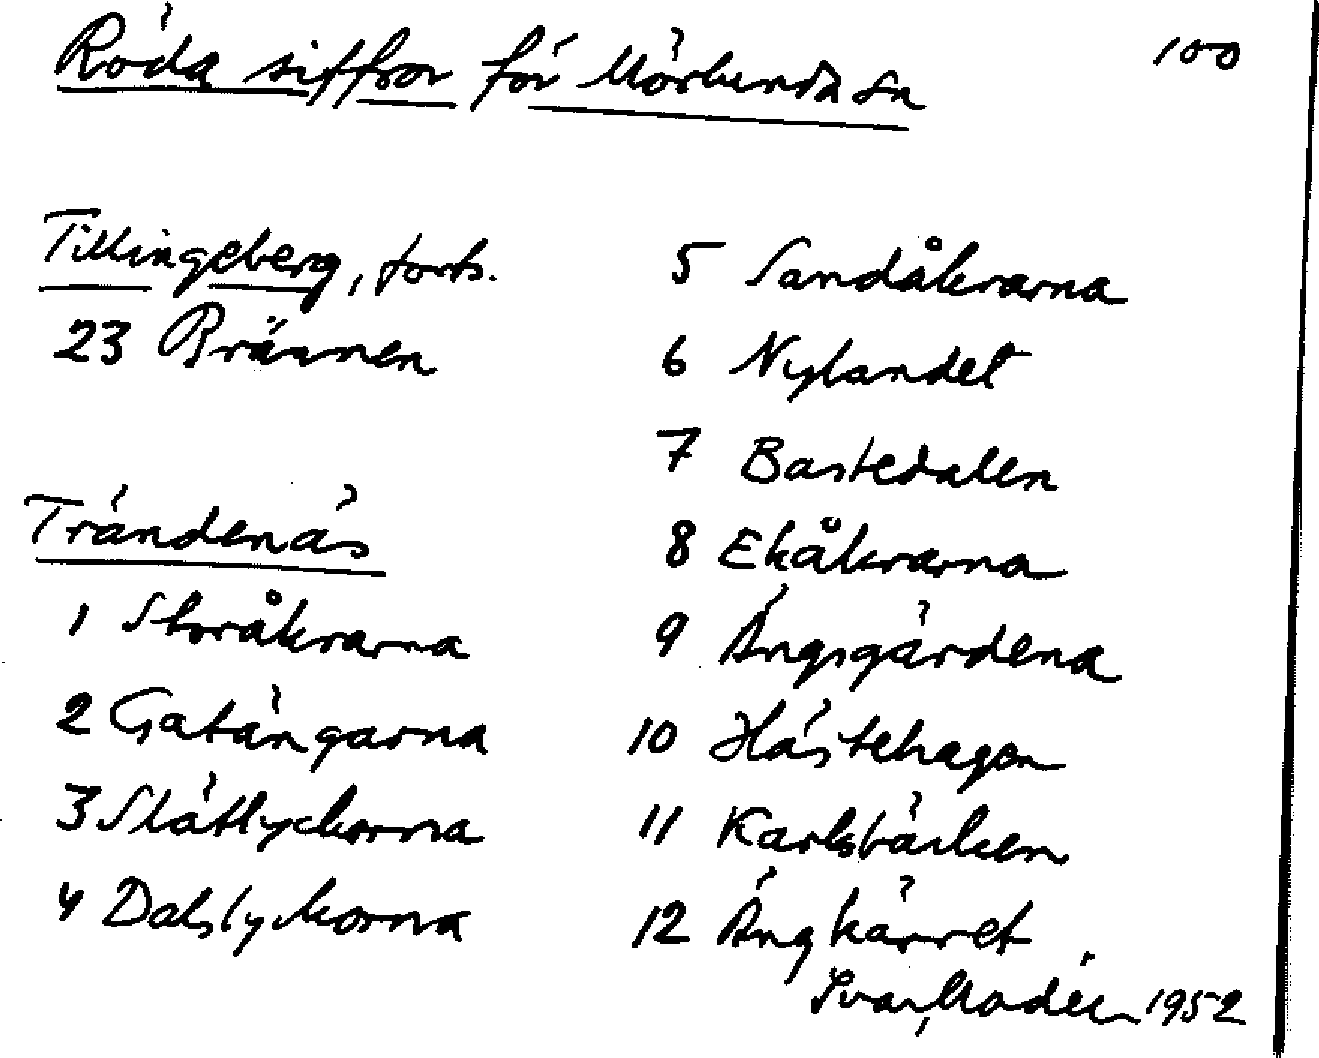 Röda siffror för Mörlunda sn
100
Tillingeberg, forts.
23 Brännen
Trändenäs
1 Storåkrarna
2 Gatängarna
3 Slätlyckorna
4 Dalslyckorna
5 Sandåkrarna
6 Nylandet
7 Bastedalen
8 Ekåkrarna
9 Ängsgärdena
10 Hästehagen
11 Karlsbäcken
12 Ängkärret
Ivar Modéer 1952